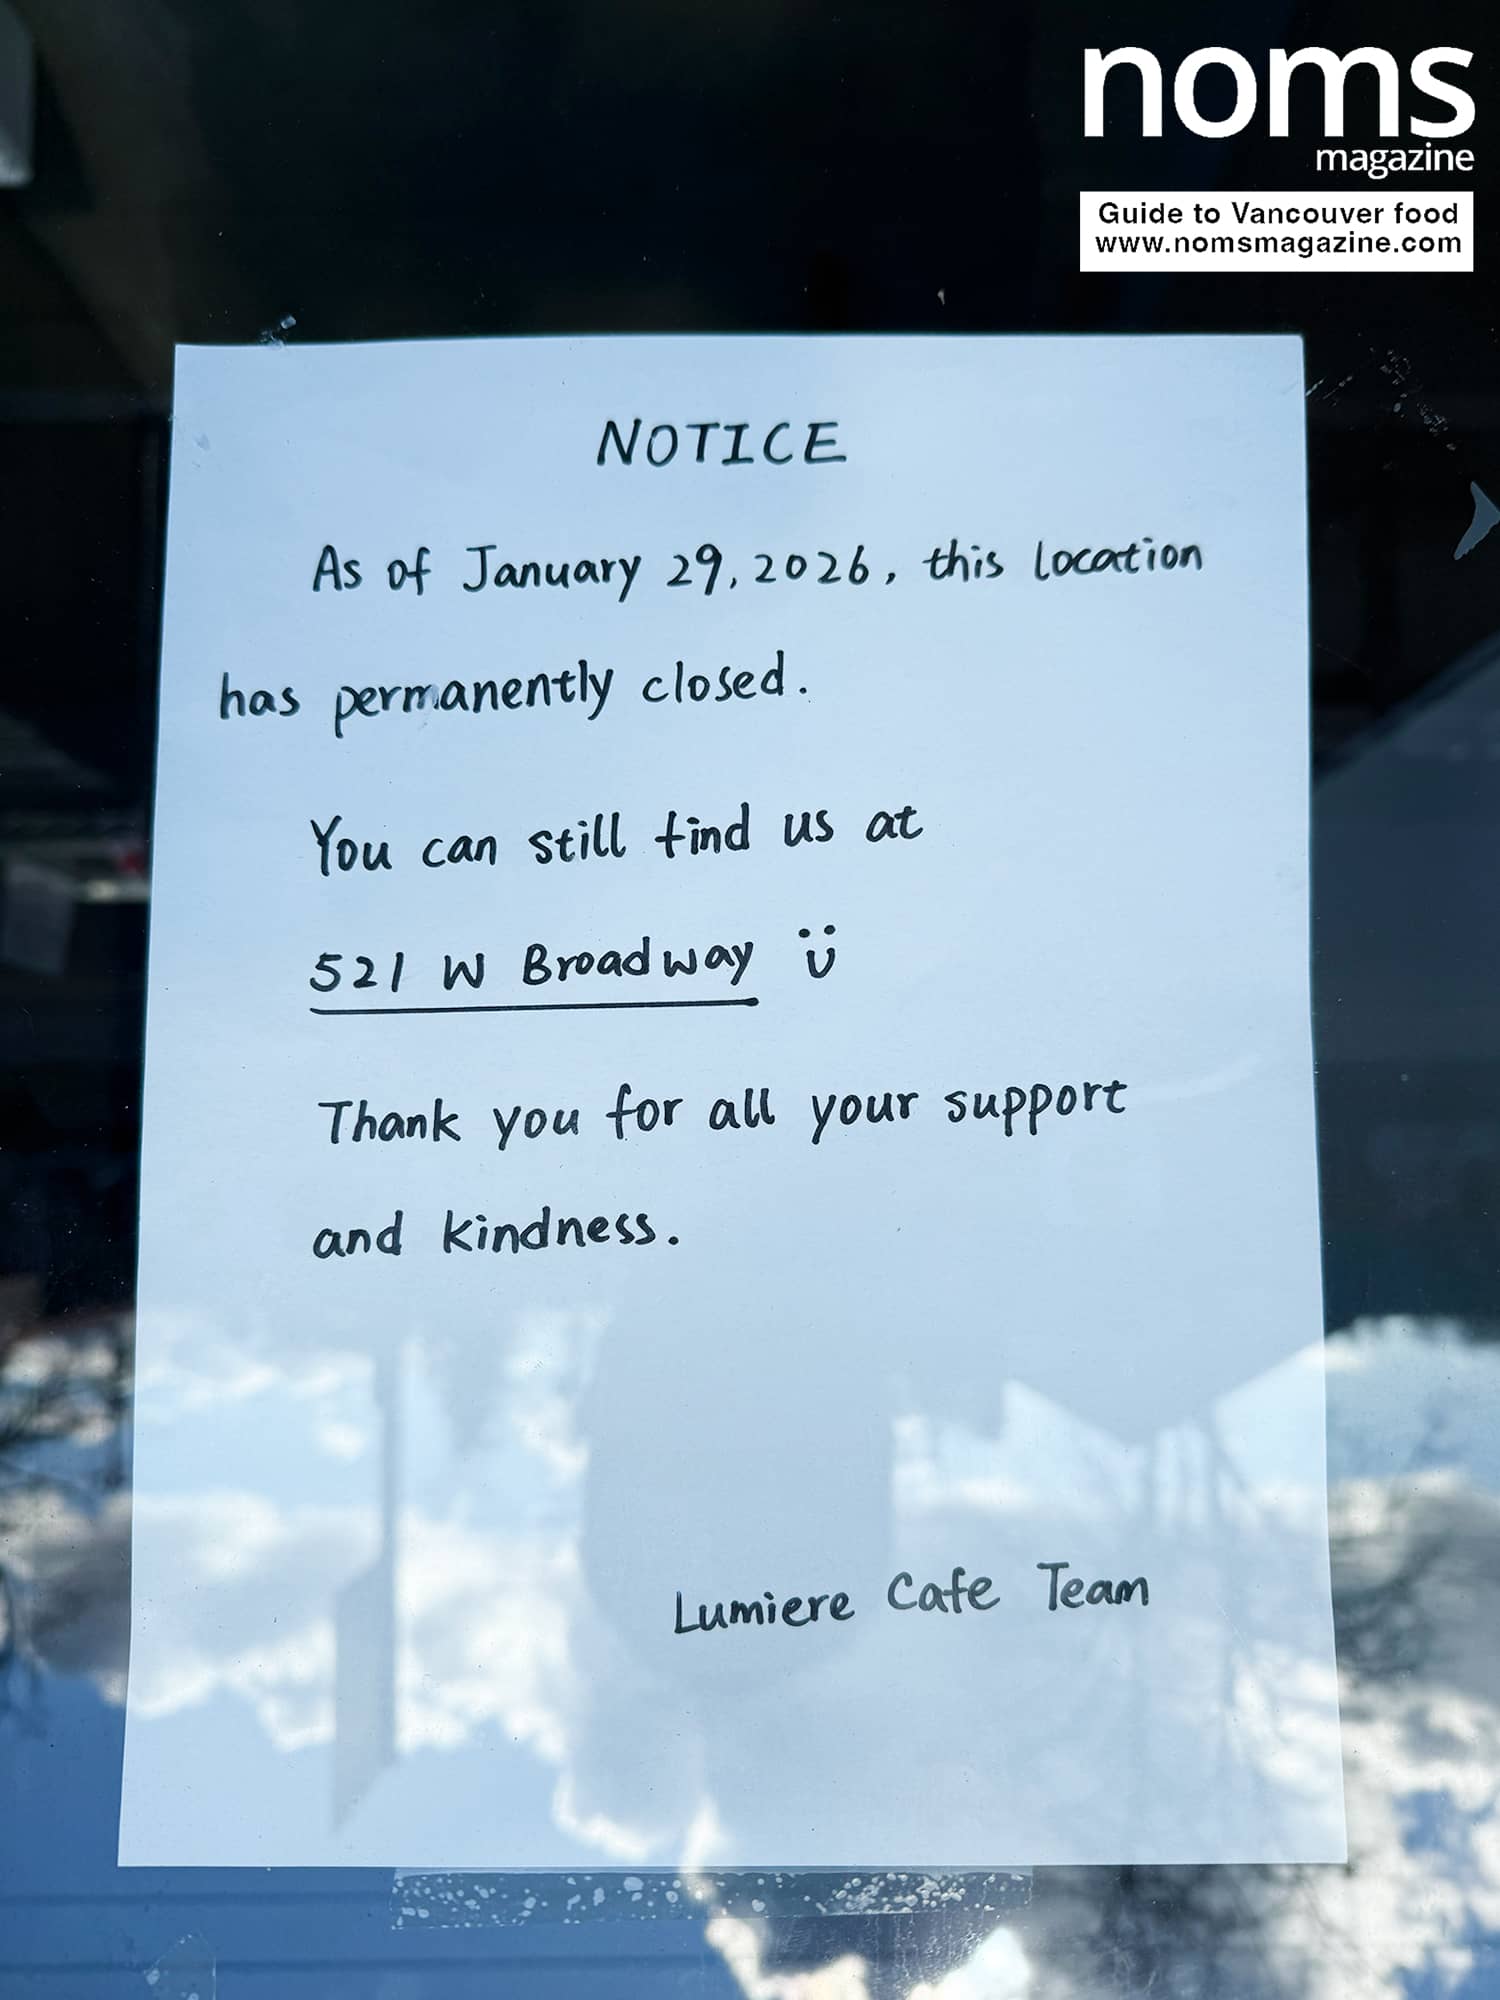 noms
magazine
Guide to Vancouver food
www.nomsmagazine.com
NOTICE
As of January 29, 2026, this location
has permanently closed.
You can still find us at
521 W Broadway
Thank you for all your support
and kindness.
Lumiere Cafe Team